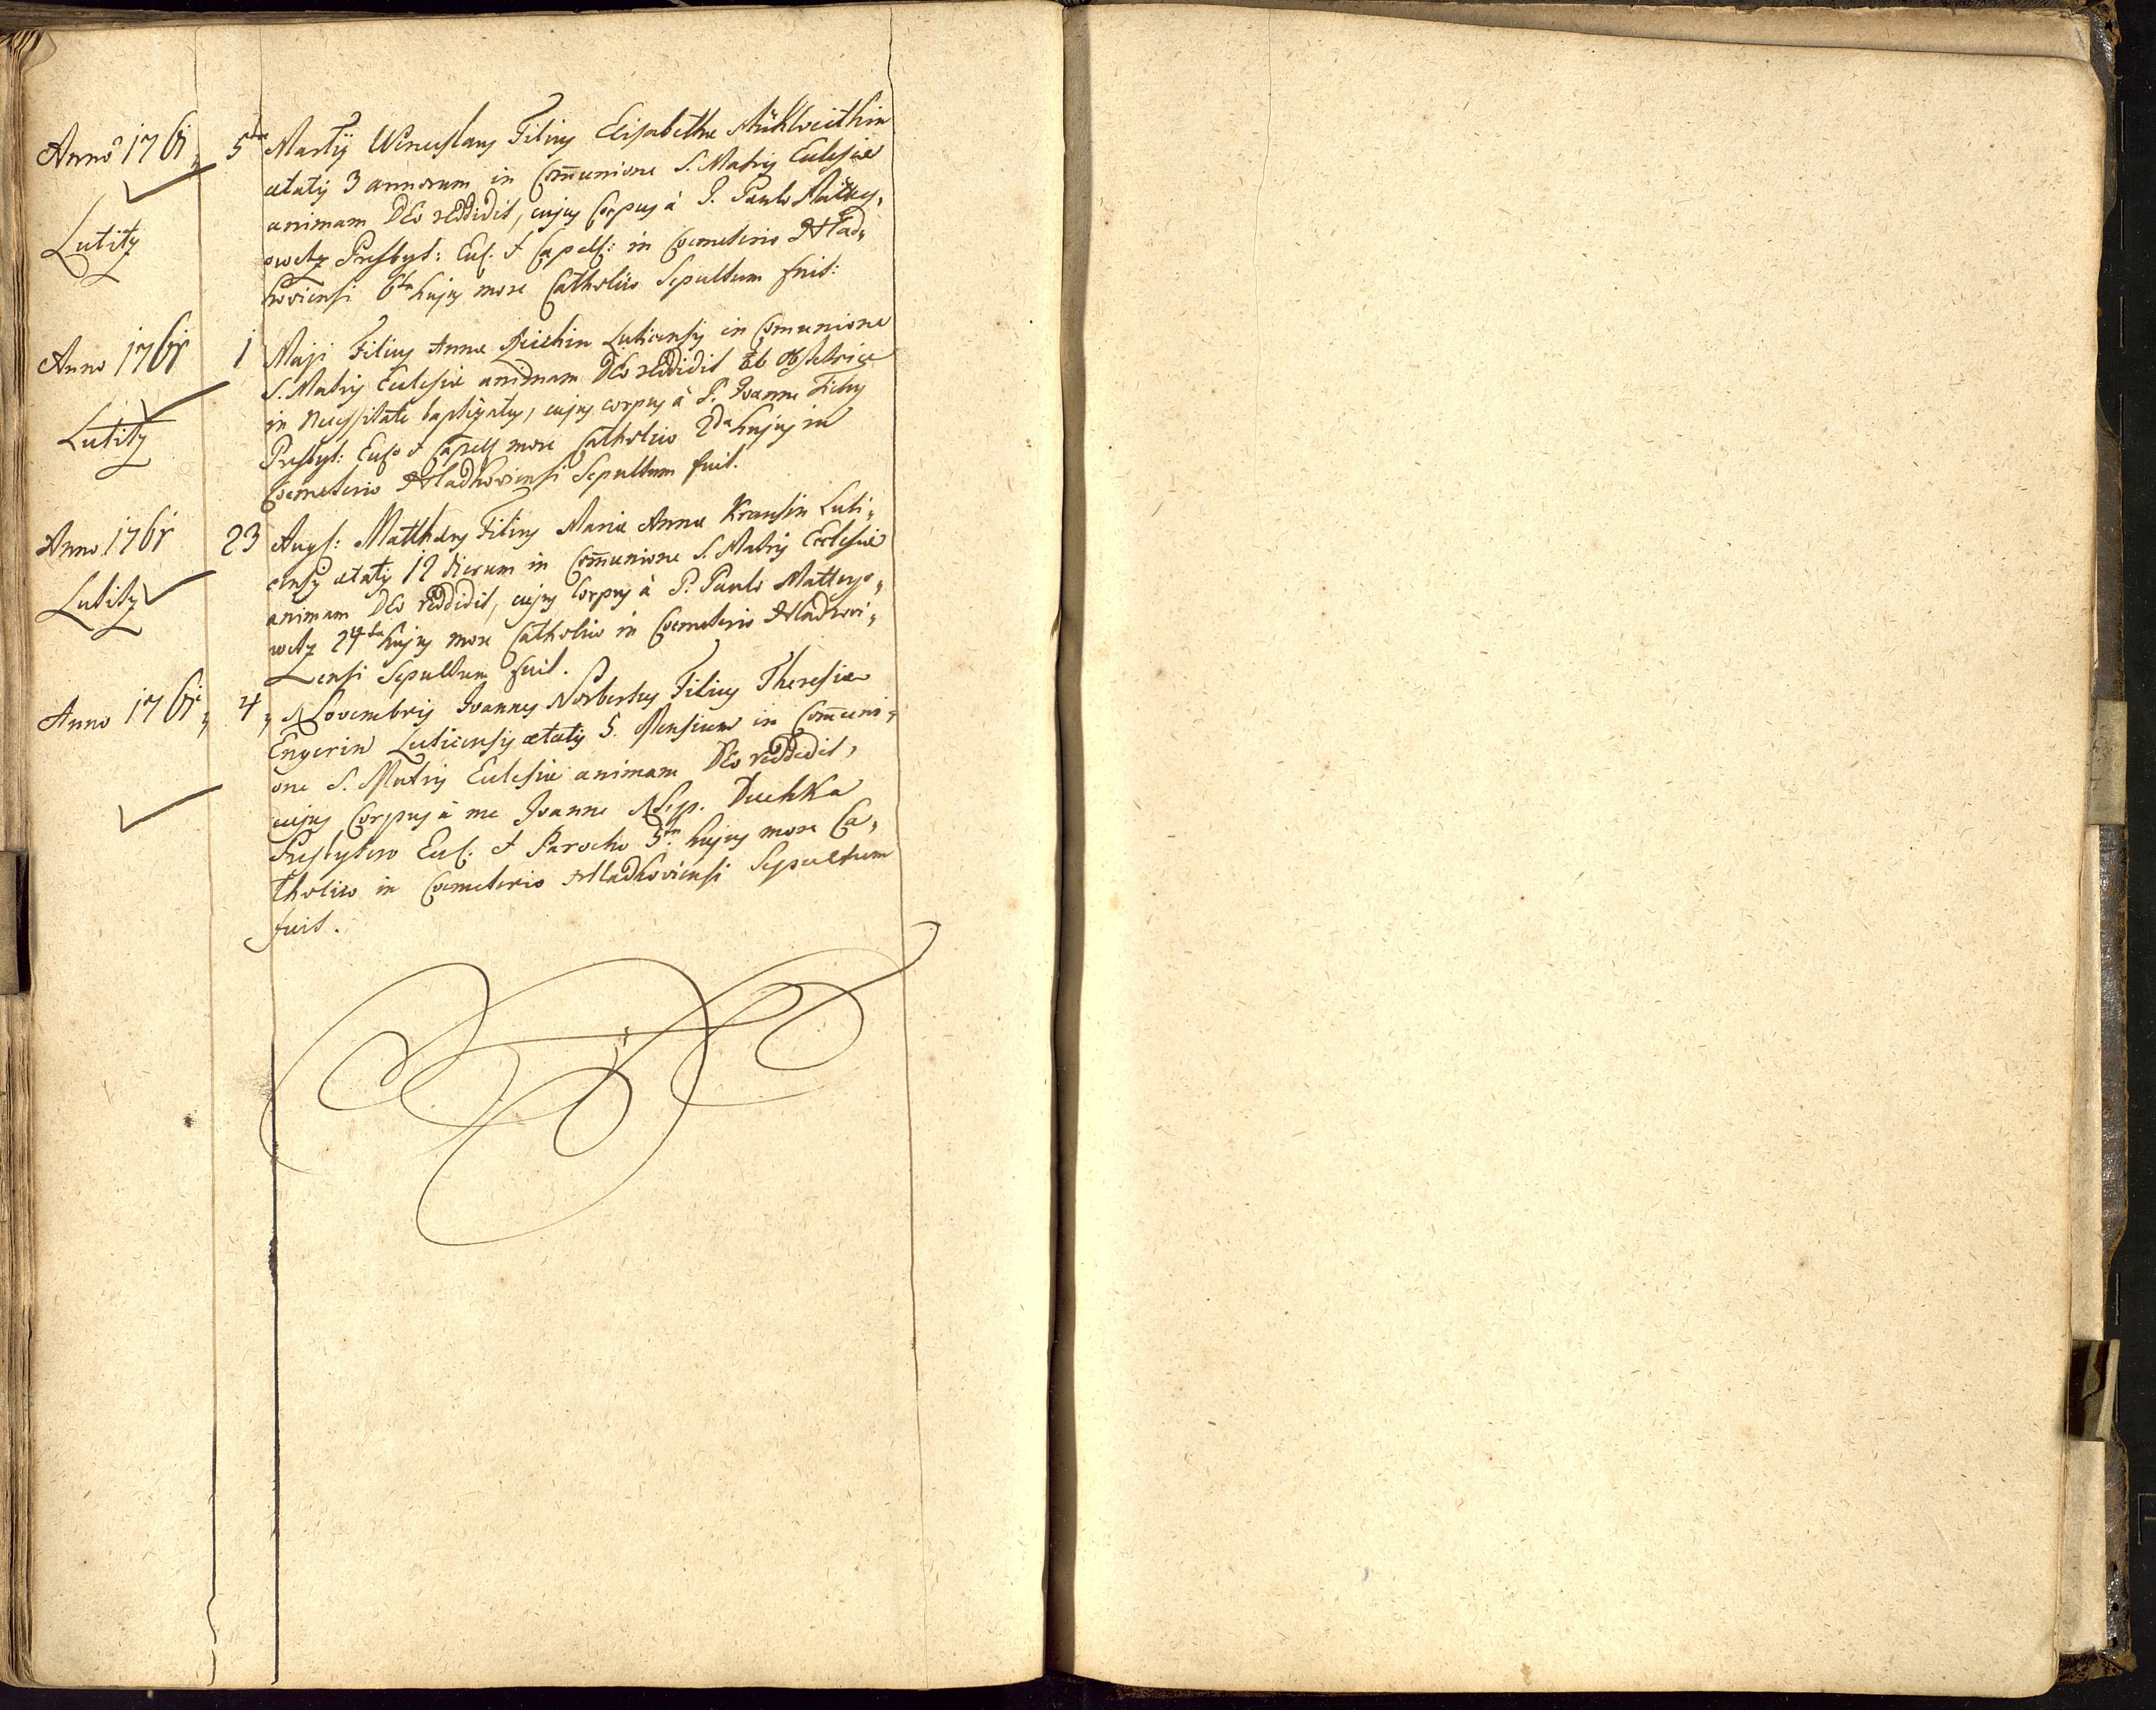 Anno 1761, 5ta Martij Wenceslaus Filius Elisabethae
aetatis 3 annorum in Com̄unione S. Matris Ecclesiae
animam Deo reddidit, cujus Corpus à P. Paulo Mattey,
Lutitz
owetz Presbyt: Eccl. & Capell: in Coemeterio Hlad,
koviensi 6ta hujus more Catholico Sepultum fuit:
Anno 1761 1 Maji Filius Annae Luticensis in Comunione
S. Matris Ecclesiae animam Deo reddidit ab obstetrice
Lutitz
in necessitate baptizatus, cujus corpus à P. Joanne Tichy
Presbyt: Eccl. & Capell more Catholico 2da hujus in
Coemeterio Hladkoviensi Sepultum fuit.
Anno 1761 23 Augs: Matthaeus Filius Mariae Annae Krausin Luti,
censis aetatis 12 dierum in Com̄unione S. Matris Ecclesiae
Lutitz
animam Deo reddidit, cujus Corpus à P. Paulo Matteyo,
wetz 24ta hujus more Catholico in Coemeterio Hladkovi,
ensi Sepultum fuit.
Anno 1761, 4, Novembris Joannes Norbertus Filius Theresiae
Engerin Luticensis aetatis 5. Mensium in Com̄uni,
one S. Matris Ecclesiae animam Deo reddidit,
cujus Corpus à me Joanne Nep. Duchka
Presbytero Eccl: & Parocho 5ta hujus more Ca,
tholico in Coemeterio Hladkoviensi Sepultum
fuit.